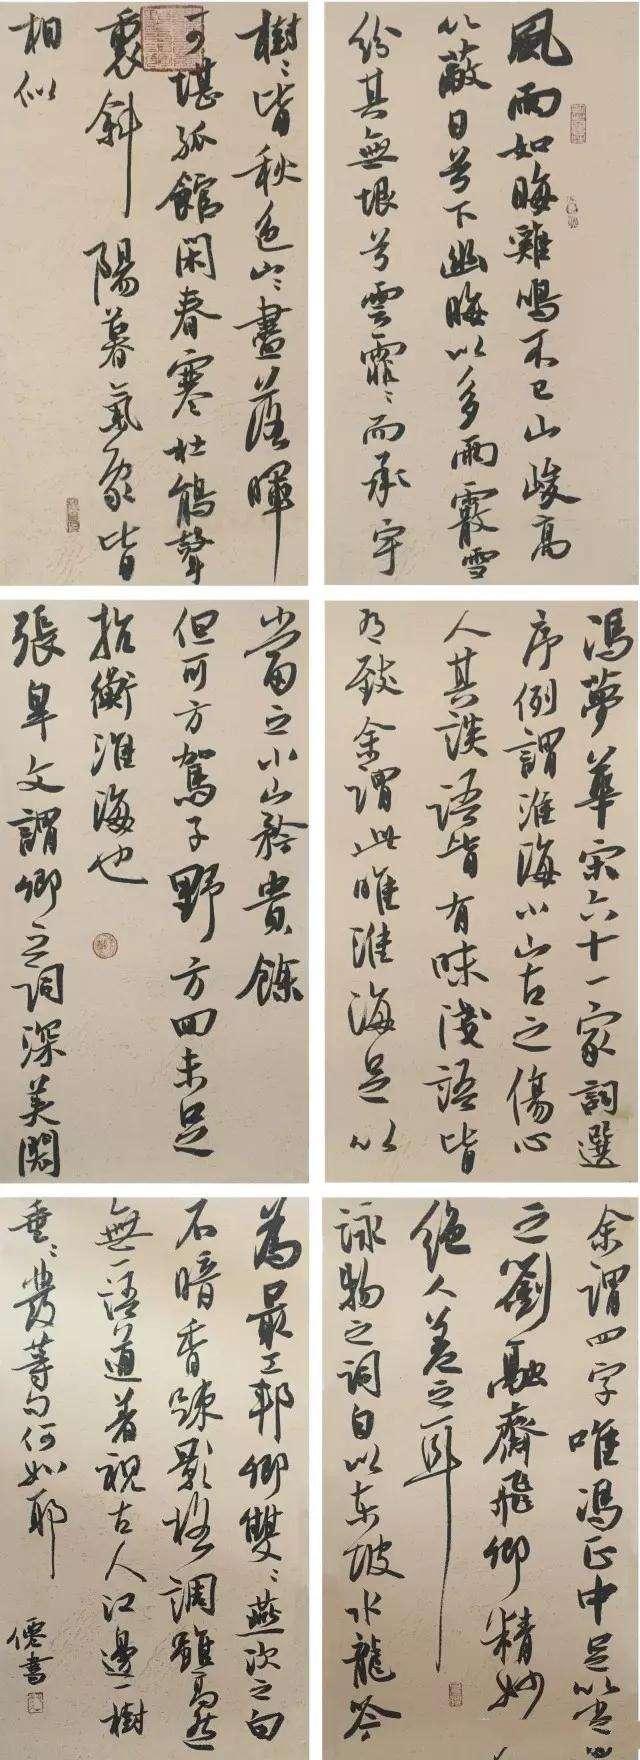 風雨如晦雞鳴不已山峻高
以蔽日兮下幽晦以多雨霰雪
紛其無垠兮雲霏〻而承宇
樹〻皆秋色山〻盡落暉
可堪孤館閑春寒杜鵑聲
裏斜陽暮氣象皆
相似
馮夢華宋六十一家詞選
序例謂淮海小山古之傷心
人其談語皆有味淺語皆
有致余謂此唯淮海足以
當之小山矜貴餘
但可方駕子野方回未足
抗衡淮海也
張皋文謂卿之詞深美閎
余謂四字唯馮正中足以當
之劉融齋飛卿精妙
絕人差之耳
詠物之詞自以東坡水龍吟
為最工邦卿雙〻燕次之白
石暗香疎影格調雖高然
無一語道着視古人江邊一樹
垂〻發等句何如耶
書